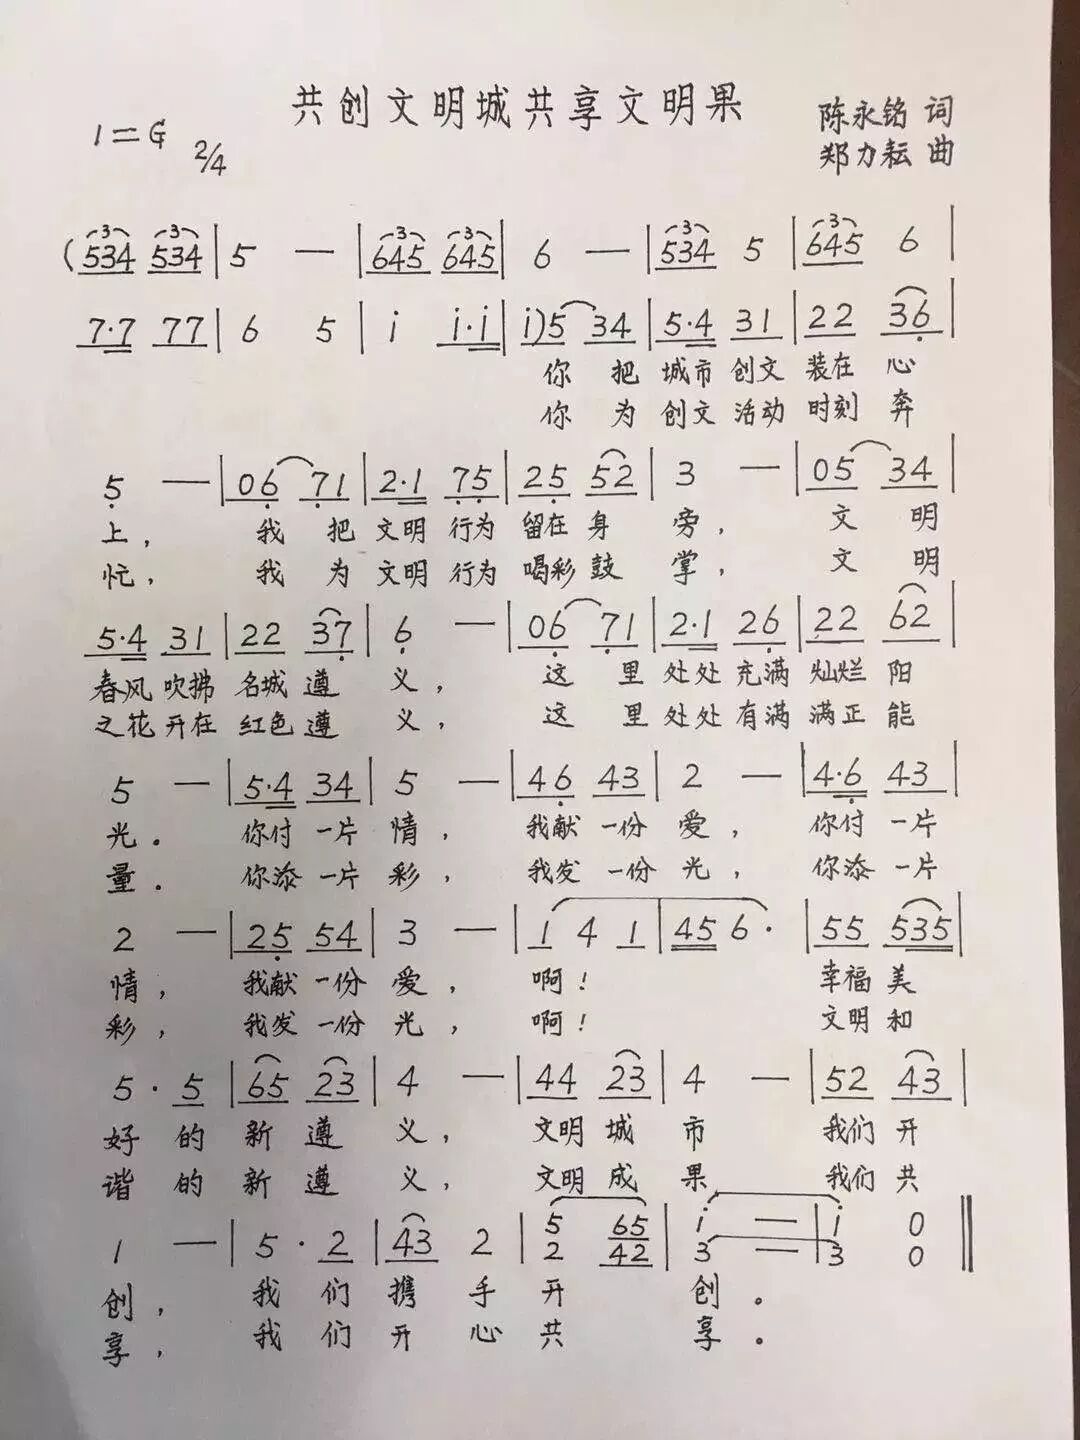 共创文明城共享文明果
1=G 2/4
陈永铭 词
郑力耘 曲
(534 534 | 5 — | 645 645 | 6 — | 534 5 | 645 6 |
7·7 77 | 6 5 | i i·i | i)5 34 | 5·4 31 | 22 36 |
你 把 城市 创文 装在 心
你 为 创文 活动 时刻 奔
5 — | 06 71 | 2·1 75 | 25 52 | 3 — | 05 34 |
上, 我 把 文明 行为 留在 身 旁, 文 明
忙, 我 为 文明 行为 喝彩 鼓 掌, 文 明
5·4 31 | 22 37 | 6 — | 06 71 | 2·1 26 | 22 62 |
春风 吹拂 名城 遵 义, 这 里 处处 充满 灿烂 阳
之花 开在 红色 遵 义, 这 里 处处 有满 满正 能
5 — | 5·4 34 | 5 — | 46 43 | 2 — | 4·6 43 |
光。 你付 一片 情, 我献 一份 爱, 你付 一片
量。 你添 一片 彩, 我发 一份 光, 你添 一片
2 — | 25 54 | 3 — | 1 4 1 | 45 6· 55 535 |
情, 我献 一份 爱, 啊! 幸福 美
彩, 我发 一份 光, 啊! 文明 和
5· 5 | 65 23 | 4 — | 44 23 | 4 — | 52 43 |
好 的 新 遵 义, 文明 城 市 我们 开
谐 的 新 遵 义, 文明 成 果 我们 共
1 — | 5· 2 | 43 2 | 5 65 | i — | i 0 ‖
2 42 3 — 3 0
创, 我 们 携 手 开 创。
享, 我 们 开 心 共 享。